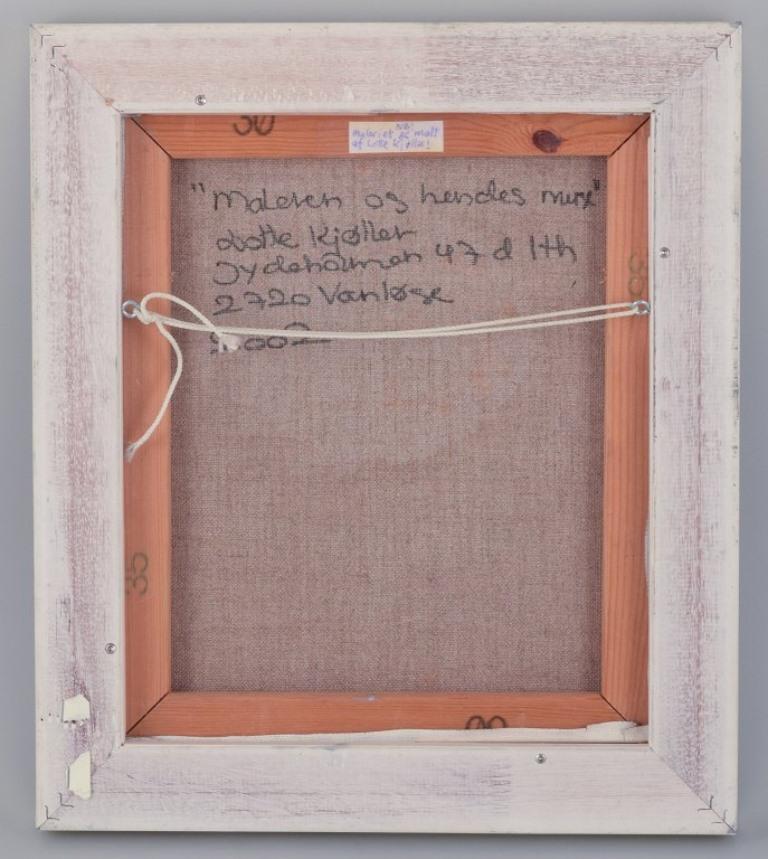 30
NB!
Maleriet er malt
af Lotte Kjøller!
"Maleren og hendes muse"
Lotte Kjøller
Jydeholmen 47 d 1th
2720 Vanløse
2002
35